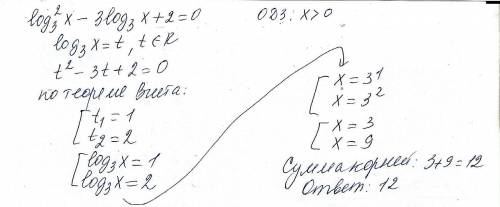 log₃²x - 3log₃x + 2 = 0
log₃x = t, t ∈ R
t² - 3t + 2 = 0
по теореме Виета:
[ t₁ = 1
[ t₂ = 2
[ log₃x = 1
[ log₃x = 2
ОДЗ: x > 0
[ x = 3¹
[ x = 3²
[ x = 3
[ x = 9
Сумма корней: 3+9=12
Ответ: 12